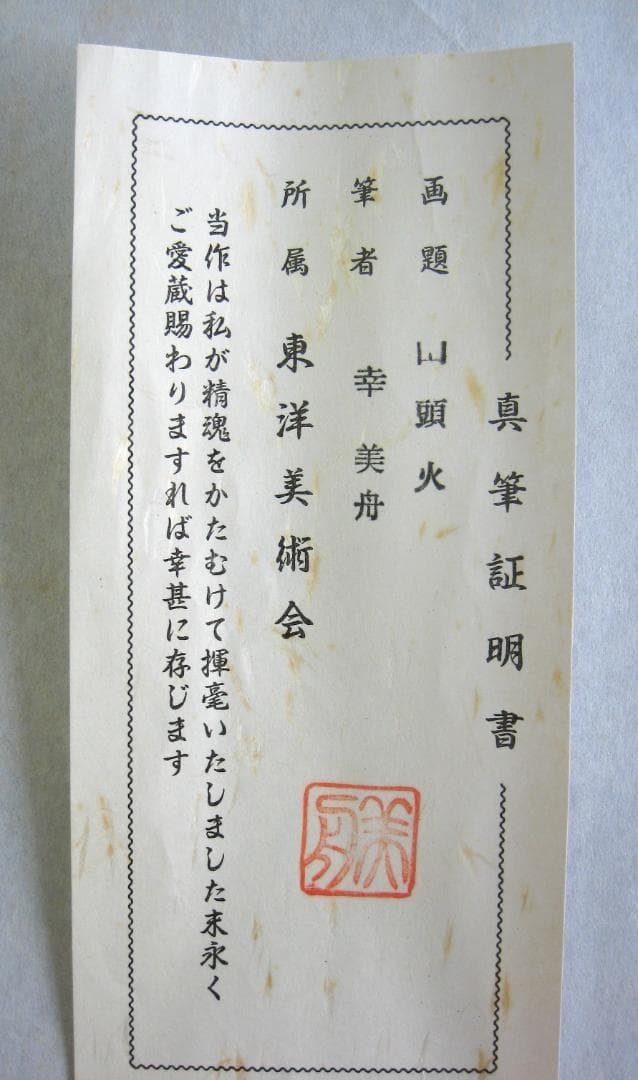 真筆証明書
画題 山頭火
筆者 幸美舟
所属 東洋美術会
当作は私が精魂をかたむけて揮毫いたしました末永く
ご愛蔵賜わりますれば幸甚に存じます
美舟